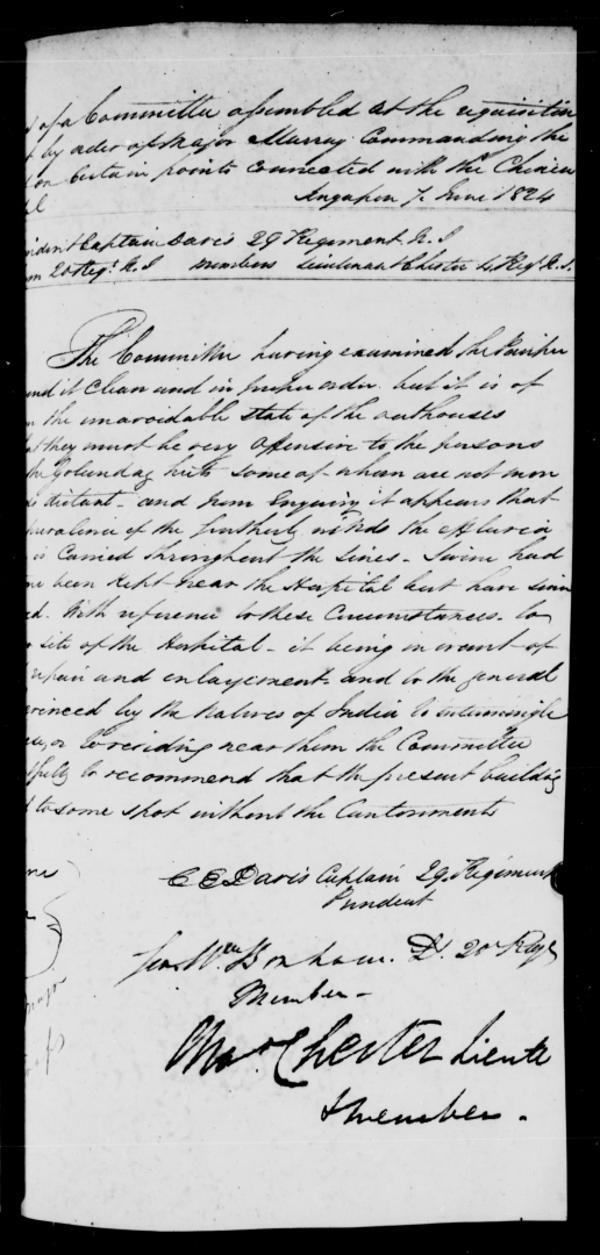 of a Committee assembled at the requisition
by order of Major Murray Commanding the
on Certain points connected with the Chinese
Singapore 7 June 1824
Captain Davis 29 Regiment N.I
20 Regt. N.I members Lieutenant Chester Regt N.I.
The Committee having examined the
it Clean and in proper order but it is of
the unavoidable state of the outhouses
they must be very offensive to the persons
the Golundaz huts some of whom are not more
distant - and from Enquiry it appears that
of the winds the effluvia
is Carried throughout the Lines - Swine had
been kept near the Hospital but have since
With reference to these Circumstances - to
site of the Hospital - it being in want of
repair and enlargement - and to the general
evinced by the Natives of India to intermingle
or to residing near them the Committee
to recommend that the present building
to some spot without the Cantonments
C E Davis Captain 29 Regiment
President
Wm Bonham. Lt. 20 Regt
Member -
Chester Lieut
Member -